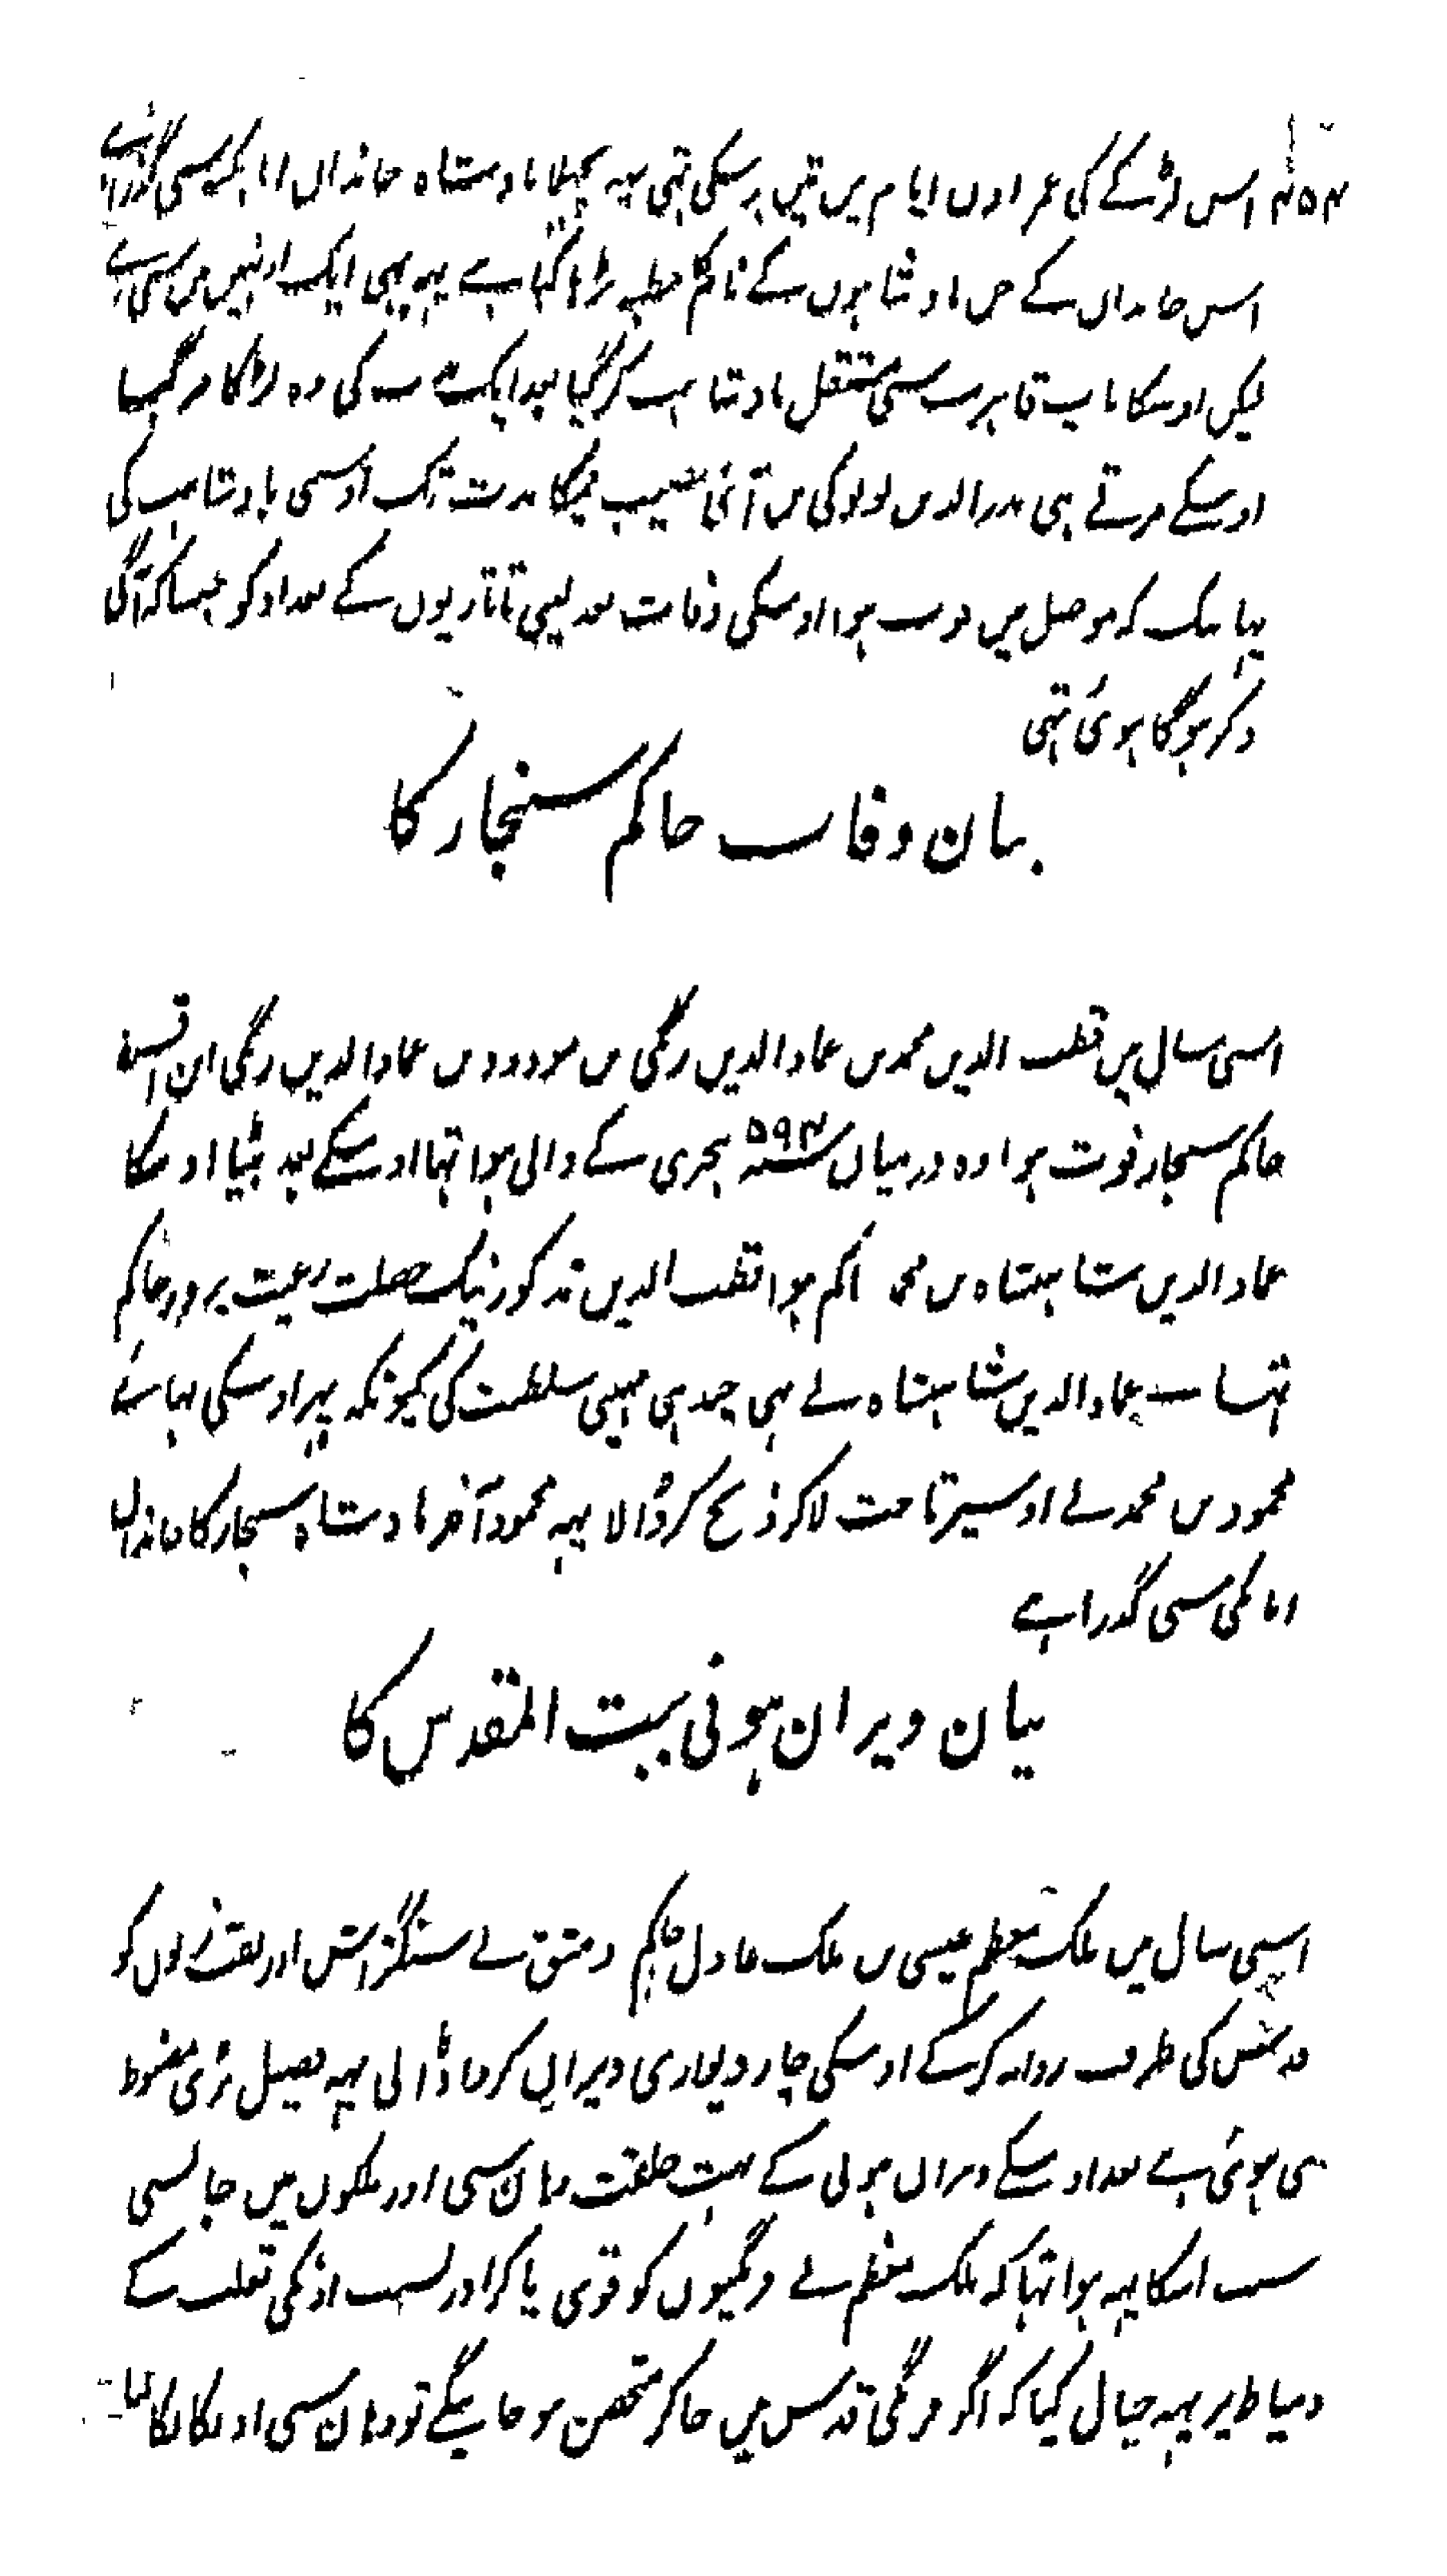 ۴۵۴ اس لڑکے کی عمر اون ایام میں تین برسکی تہی یہہ پچھلا بادشاہ خاندان اتابکیہ سی گذرا ہے
اس خاندان کے جن بادشاہوں کے نام کا خطبہ پڑھا گیا ہے یہہ بہی ایک اونہیں میں سی ہے
لیکن اوسکا باپ قاہر سب سی مستقل بادشاہت کر گیا بعد ایک مدت کی وہ لڑکا مر گیا
اوسکے مرتے ہی بدر الدین لولو کی بن آئی نصیب چمکا مدت تک اوسی بادشاہت کی
یہانتک کہ موصل میں فوت ہوا اوسکی وفات بعد لینی تاتاریوں کے بغداد کو جیسا کہ آگی
ذکر ہوگا ہوئی تہی
بیان وفات حاکم سنجار کا
اسی سال میں قطب الدین محمد بن عماد الدین زنگی بن مودود بن عماد الدین زنگی ابن اقسنقر
حاکم سنجار فوت ہوا وہ درمیان ۵۹۴ سنہ ہجری کے والی ہوا تہا اوسکے بعد بیٹا اوسکا
عماد الدین شاہنشاہ بن محمد حاکم ہوا قطب الدین مذکور نیک خصلت رعیت پرور حاکم
تہا عماد الدین شاہنشاہ نے بہی چند ہی مہینی سلطنت کی کیونکہ پہر اوسکی بہائے
محمود بن محمد نے اوسپر تاخت لاکر ذبح کر ڈالا یہہ محمود آخر بادشاہ سنجار کا خاندان
اتابکی سی گذرا ہے
بیان ویران ہونی بیت المقدس کا
اسی سال میں ملک معظم عیسی بن ملک عادل حاکم دمشق نے سنگتراش اور نقب زنوں کو
قدس کی طرف روانہ کرکے اوسکی چار دیواری ویران کروا ڈالی یہہ فصیل بڑی مضبوط
بنی ہوئی ہے بعد اوسکے ویران ہونی کے بہت خلقت وہان سی اور ملکوں میں جا بسی
سبب اسکا یہہ ہوا تہا کہ ملک معظم نے فرنگیوں کو قوی پا کر اور بسبب اونکی تغلب کے
دمیاط پر یہہ خیال کیا کہ اگر فرنگی قدس میں جاکر متحصن ہو جائینگے تو وہان سی اونکا نکالنا